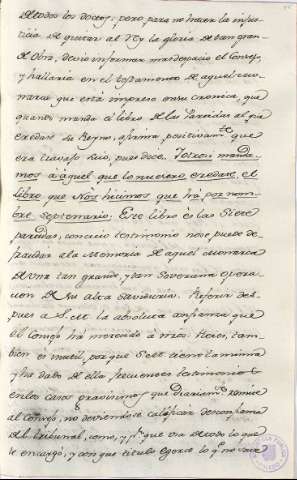 de todos los doctos; pero para no hacer la injus-
ticia de quitar al Rey la gloria de tan gran-
de obra, devio informar mas despacio el Consejo,
y hallaria en el testamento de aquel mo-
narca que está impreso en su cronica, que
quando manda el libro de las Partidas al que
eredase su Reyno, afirma positivamte que
era travajo suio, pues dice. Iotrosi manda-
mos a aquel que lo nuestro eredase, el
libro que Nòs hicimos que há por nom-
bre Septenario. Este libro es las Siete
partidas, con cuio testimonio no se puede de-
fraudar a la Memoria de aquel Monarca
de una tan grande, y tan Soverana opera-
cion de su alta Savidurìa. Referir des-
pues a S. M. la absoluta confianza que
el Consejo há merecido à mros Reies, tam-
bien es inutil, por que S. M. tiene la misma
y ha dado de ella frecuentes testimonios
en los casos gravisimos que Diariemte remite
al Consejo, no deviendose calificar desconfianza
del tribunal, como, y pr que usa de todo lo que
le encargó, y con que titulo egerce lo qe no